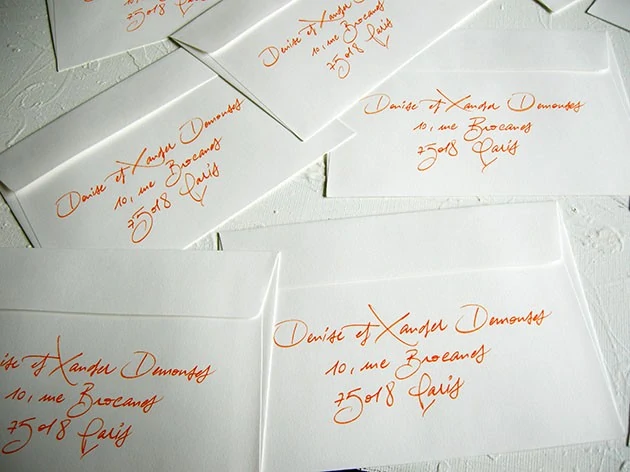 75018 Paris
Denise et Xander Demonses
10, rue Brocanes
75018 Paris
Denise et Xander Demonses
10, rue Brocanes
75018 Paris
Denise et Xander Demonses
10, rue Brocanes
75018 Paris
Denise et Xander Demonses
10, rue Brocanes
75018 Paris
ise et Xander Demonses
10, rue Brocanes
75018 Paris